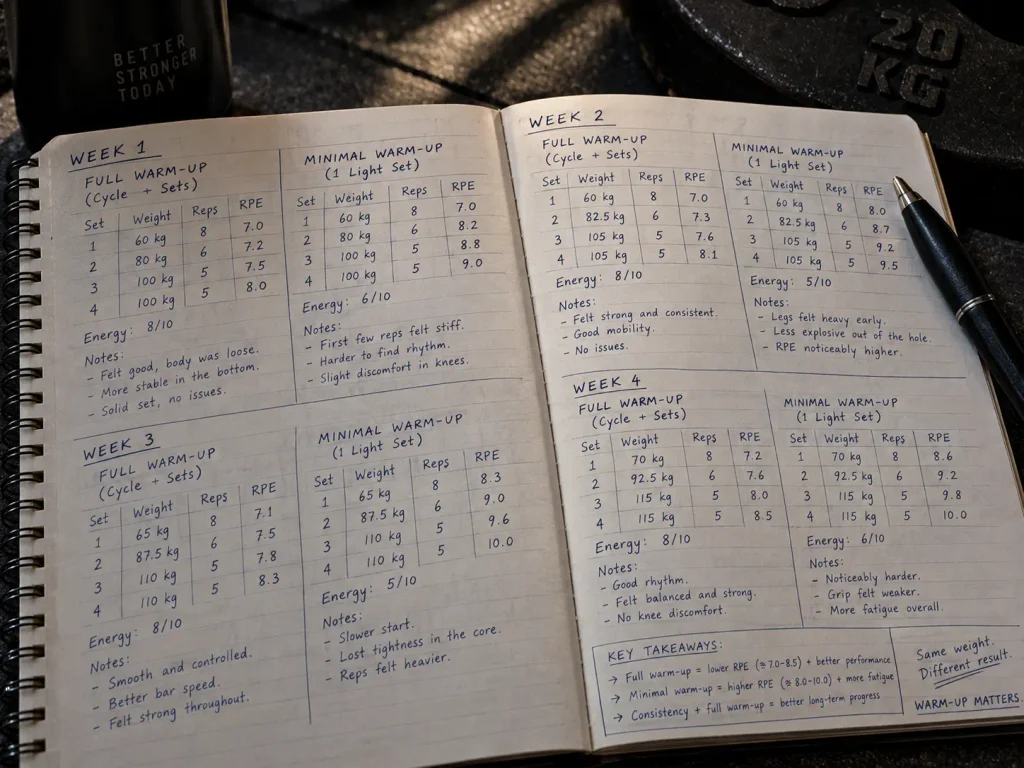 BETTER
STRONGER
TODAY
20
KG
WEEK 1
FULL WARM-UP
(Cycle + Sets)
Set Weight Reps RPE
1 60 kg 8 7.0
2 80 kg 6 7.2
3 100 kg 5 7.5
4 100 kg 5 8.0
Energy: 8/10
Notes:
- Felt good, body was loose.
- More stable in the bottom.
- Solid set, no issues.
MINIMAL WARM-UP
(1 Light Set)
Set Weight Reps RPE
1 60 kg 8 7.0
2 80 kg 6 8.2
3 100 kg 5 8.8
4 100 kg 5 9.0
Energy: 6/10
Notes:
- First few reps felt stiff.
- Harder to find rhythm.
- Slight discomfort in knees.
WEEK 3
FULL WARM-UP
(Cycle + Sets)
Set Weight Reps RPE
1 65 kg 8 7.1
2 87.5 kg 6 7.5
3 110 kg 5 7.8
4 110 kg 5 8.3
Energy: 8/10
Notes:
- Smooth and controlled.
- Better bar speed.
- Felt strong throughout.
MINIMAL WARM-UP
(1 Light Set)
Set Weight Reps RPE
1 65 kg 8 8.3
2 87.5 kg 6 9.0
3 110 kg 5 9.6
4 110 kg 5 10.0
Energy: 5/10
Notes:
- Slower start.
- Lost tightness in the core.
- Reps felt heavier.
WEEK 2
FULL WARM-UP
(Cycle + Sets)
Set Weight Reps RPE
1 60 kg 8 7.0
2 82.5 kg 6 7.3
3 105 kg 5 7.6
4 105 kg 5 8.1
Energy: 8/10
Notes:
- Felt strong and consistent.
- Good mobility.
- No issues.
MINIMAL WARM-UP
(1 Light Set)
Set Weight Reps RPE
1 60 kg 8 8.0
2 82.5 kg 6 8.7
3 105 kg 5 9.2
4 105 kg 5 9.5
Energy: 5/10
Notes:
- Legs felt heavy early.
- Less explosive out of the hole.
- RPE noticeably higher.
WEEK 4
FULL WARM-UP
(Cycle + Sets)
Set Weight Reps RPE
1 70 kg 8 7.2
2 92.5 kg 6 7.6
3 115 kg 5 8.0
4 115 kg 5 8.5
Energy: 8/10
Notes:
- Good rhythm.
- Felt balanced and strong.
- No knee discomfort.
MINIMAL WARM-UP
(1 Light Set)
Set Weight Reps RPE
1 70 kg 8 8.6
2 92.5 kg 6 9.2
3 115 kg 5 9.8
4 115 kg 5 10.0
Energy: 6/10
Notes:
- Noticeably harder.
- Grip felt weaker.
- More fatigue overall.
KEY TAKEAWAYS:
→ Full warm-up = lower RPE (≈ 7.0-8.5) + better performance
→ Minimal warm-up = higher RPE (≈ 8.0-10.0) + more fatigue
→ Consistency + full warm-up = better long-term progress
Same weight.
Different result.
WARM-UP MATTERS.